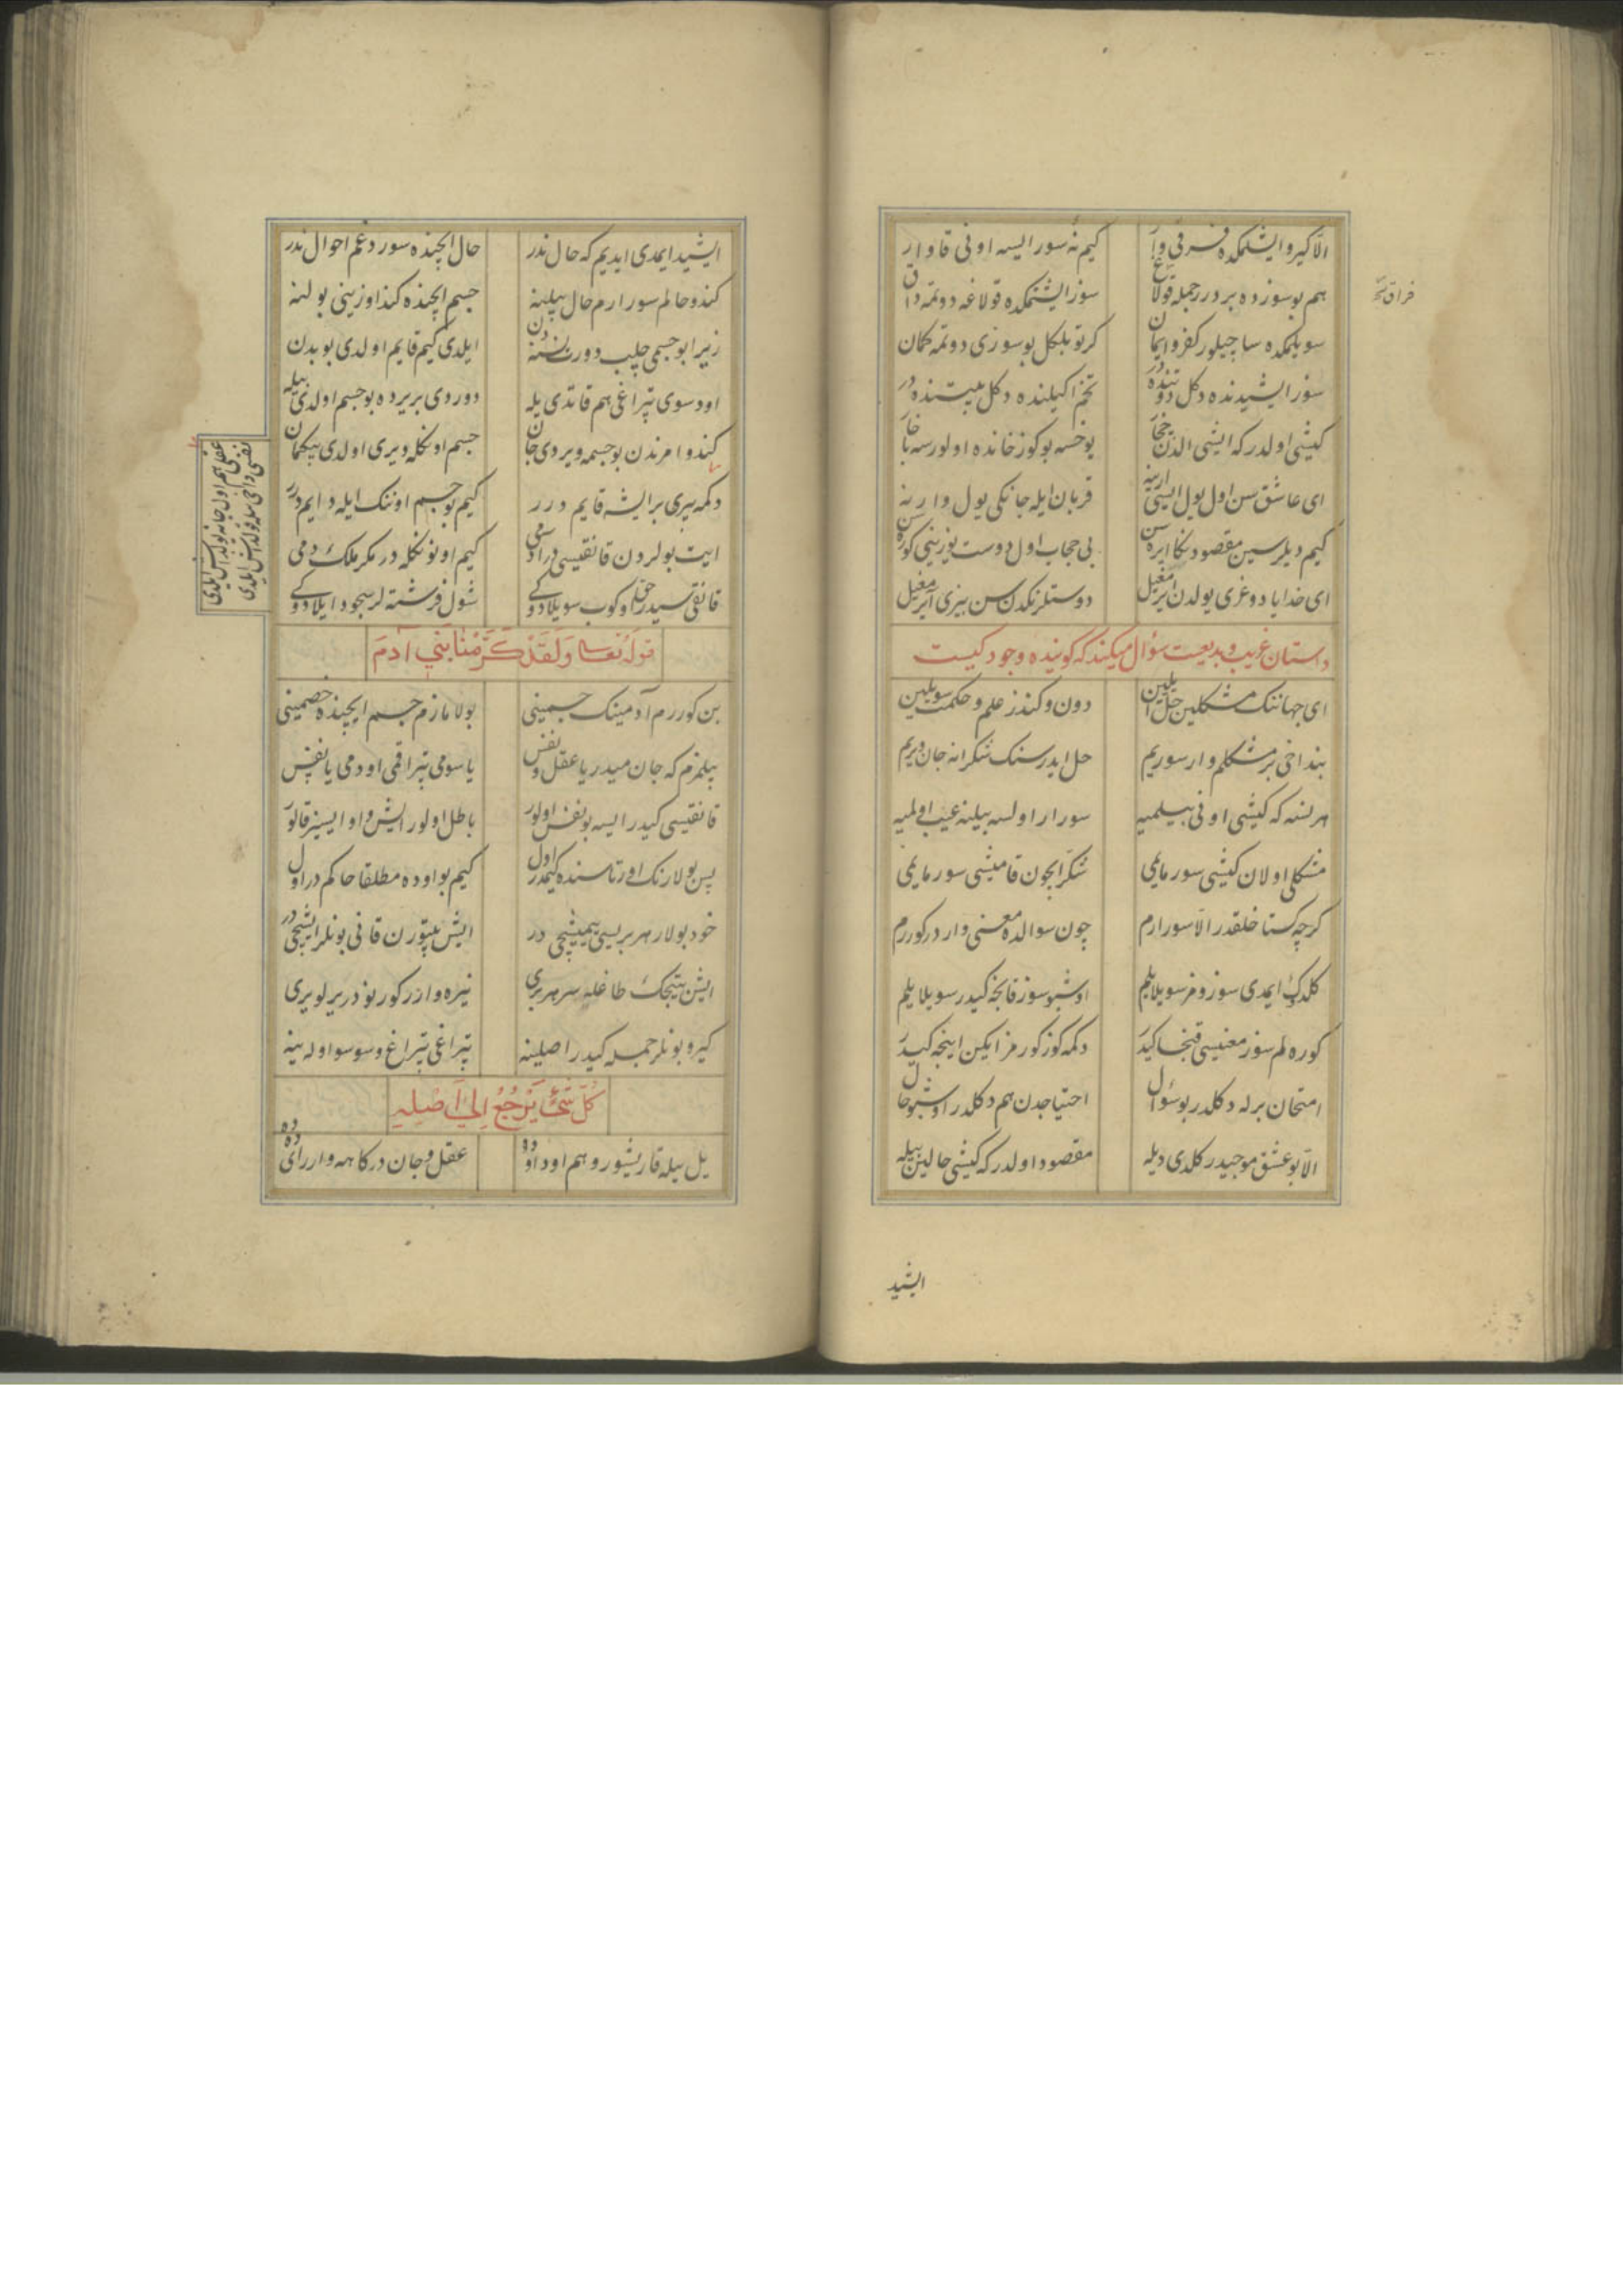 الا كیرو ایشتمكده فرقی وار كیم نه سور ایسه اونی قاوار
هم بو سوزده بر درر جمله قولاغ سوز ایشتمكده قولاغه دوتمه داق
فراق نسخه
سویلمكده ساچیلور كفر و ایمان كرتو بلكل بو سوزی دوتمه كمان
سوز ایشیدنده دكل دوتنده در تخم اكیلنده دكل بیتنده در
كیشی اولدر كه ایشی الدن
ای عاشق سن اول یول ایسی ارینه قربان ایله جانكی یول وارنه
كیم دیلرسین مقصودنكا ایره سن بی حجاب اول دوست یوزینی كوره سن
ای خدایا دوغری یولدن ایرمغیل دوستلرنكدن سن بیزی آیرمغیل
داستان غریب و بدیعست سؤال میكند كه كوینده وجود كیست
ای جهاننك مشكلین حل ایلین دون و كندز علم و حكمت سویلین
بنداخی بر مشكلم وار سوریم حل ایدرسنك شكرانه جان ویریم
هر نسنه كه كیشی اونی بیلمیه سورار اولسه بیلنه عیب اولمیه
مشكلی اولان كیشی سورمایمی شكر ایچون قامیشی سورمایمی
كرچه كستاخلقدر الا سورارم چون سوالده معنی واردر كوررم
كلدك ایمدی سوزومز سویلایلم اوشبو سوز قانجه كیدر سویلایلم
كوره لم سوز معنیسی قنجا كیدر دكمه كوز كورمز ایكن اینجه كیدر
امتحان برله دكلدر بو سؤال احتیاجدن هم دكلدر اوشبو حال
الا بو عشق موجیدر كلدی دیله مقصود اولدر كه كیشی حالین بیله
ایشید
ایشید ایمدی ایدیم كه حال ندر حال ایچنده سوردغم احوال ندر
كندو حالم سورارم حال بیلینه جسم ایچنده كند اوزینی بولنه
زیرا بو جسمی چلب دورت نسنه دن ایلدی كیم قایم اولدی بو بدن
اود سوی تپراغی هم قاتدی یله دوردی بریرده بو جسم اولدی بیله
كندو امرندن بو جسمه ویردی جان جسم اونكله ویری اولدی بیكمان
عقلی هم اول جانه
نفسی داخی
دكمه بیری بر ایشه قایم درر كیم بو جسم اوننك ایله دایم درر
ایت بولردن قانقیسی در ادمی كیم اونونكله در مكر ملك دمی
قانقیسیدر حق اوكوب سویلادوكی شول فرشته لر سجود ایلادوكی
قوله تعالی وَلَقَدْ كَرَّمْنَا بَنِي آدَمَ
بن كوررم آدمینك جسمینی بولامازم جسم ایچنده خصمینی
بیلمزم كه جان میدر یا عقل و نفس یا سومی تپراقمی اودمی یا نفس
قانقیسی كیدر ایسه بو نقش اولور باطل اولور ایش و او ایسیز قالور
پس بولارنك اورتاسنده كیمدر اول كیم بو اوده مطلقا حاكم در اول
خود بولار هر بریسی بیمیشچی در ایش بیتورن قانی بونلر ایشچی در
ایش بیتیجك طاغلیر هر بری نیره وارر كورنوز در یر لویری
كیرو بونلر جمله كیدر اصلینه تپراغی تپراغ و سو سو اوله ینه
كُلُّ شَيْءٍ يَرْجِعُ إِلَى أَصْلِهِ
یل یله قاریشور و هم اود اوده عقل و جان دركاهه وارر